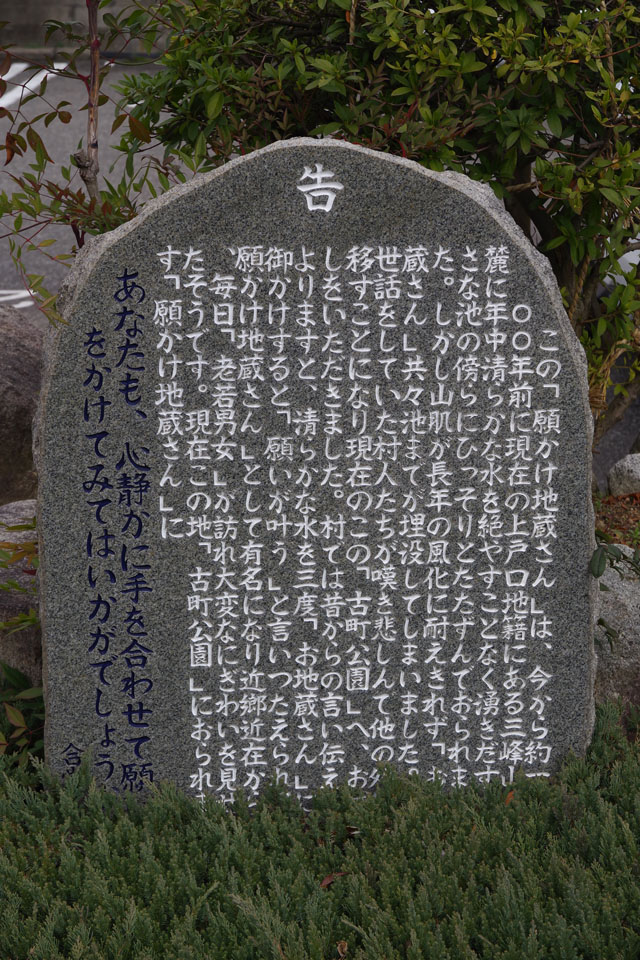 告
この「願かけ地蔵さん」は、今から約一
〇〇年前に現在の上戸口地籍にある三峰山
麓に年中清らかな水を絶やすことなく湧きだす
さな池の傍らにひっそりとたたずんておられま
た。しかし山肌が長年の風化に耐えきれず「お
蔵さん」共々池まてが埋没してしまいました
世話をしていた村人たちが嘆き悲しんて他の
移すことになり現在のこの「古町公園」へ、お
しをいただきました。村ては昔からの言い伝え
よりますと、清らかな水を三度「お地蔵さん」に
御かけすると「願いが叶う」と言いつたえられ
願かけ地蔵さん」として有名になり近郷近在か
、毎日「老若男女」が訪れ大変なにぎわいを見せ
たそうです。現在この地「古町公園」におられま
す「願かけ地蔵さん」に
あなたも、心静かに手を合わせて願
をかけてみてはいかがてしょう
合